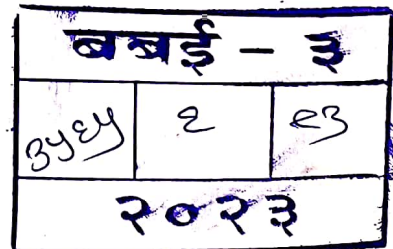 बबई - ३
३५६५
२०२३